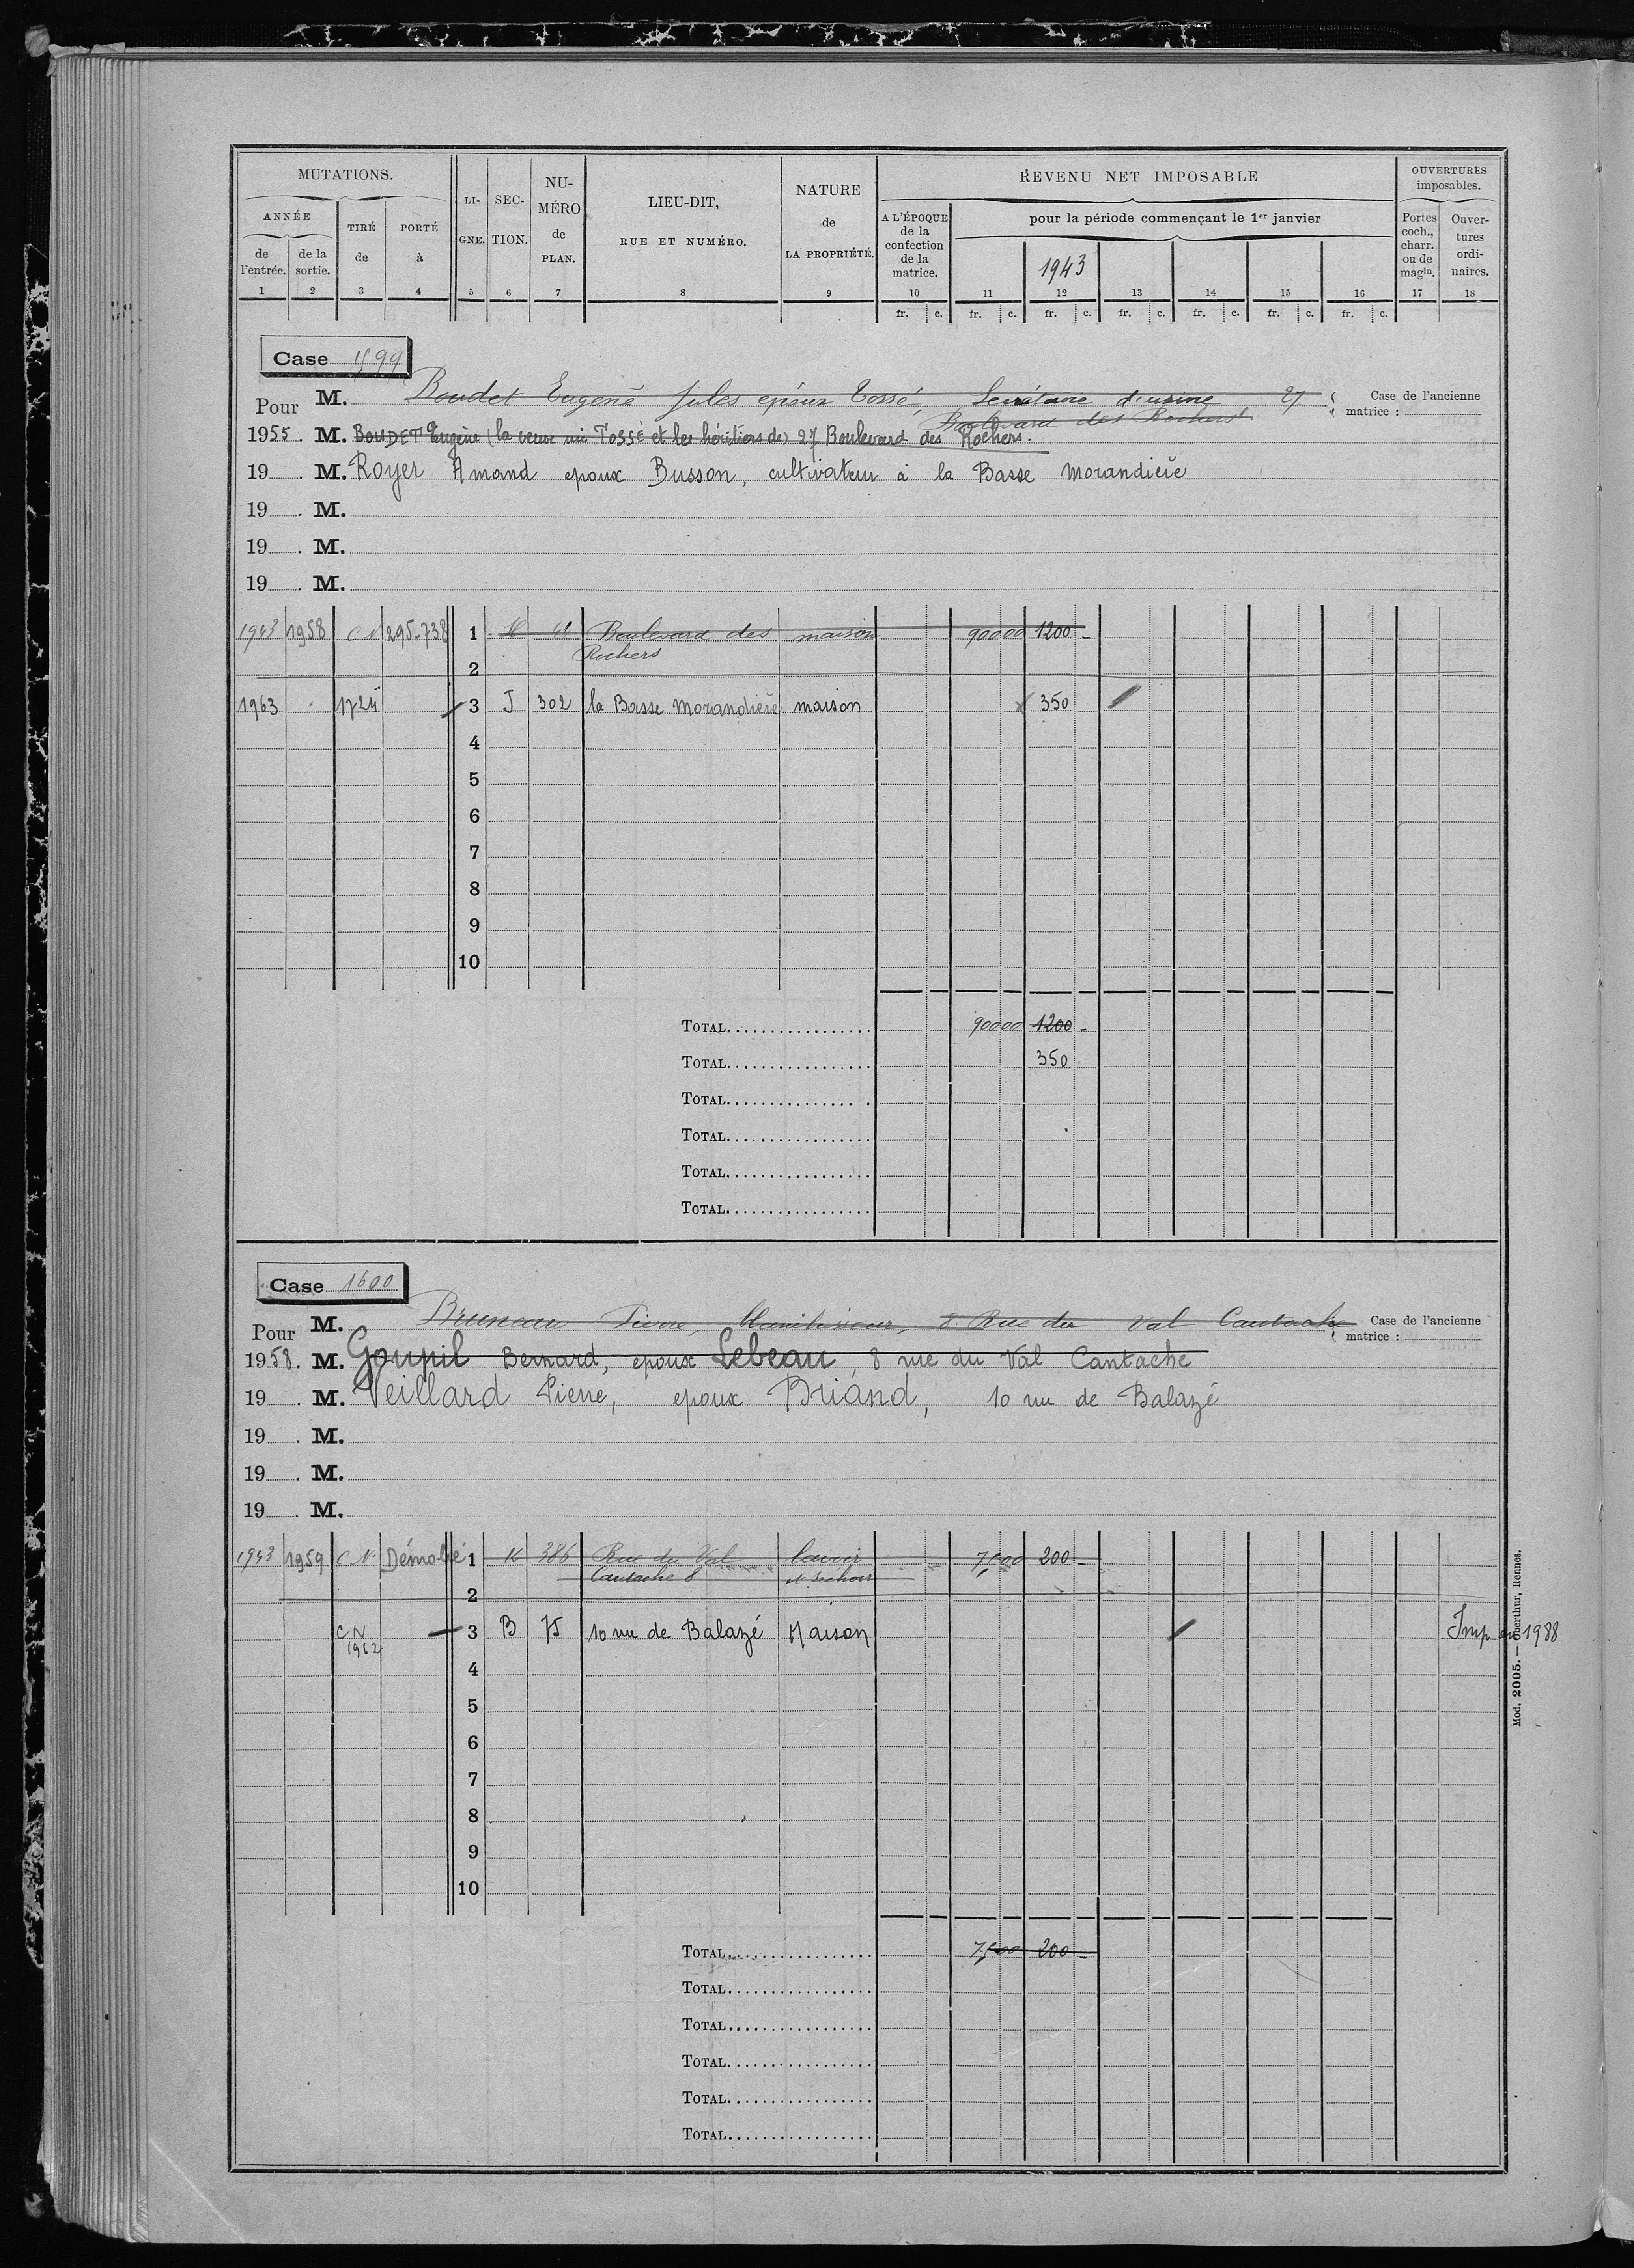 MUTATIONS.
ANNÉE
de l'entrée.
de la sortie.
TIRÉ de
PORTÉ à
LI-GNE.
SEC-TION.
NU-MÉRO de PLAN.
LIEU-DIT, RUE ET NUMÉRO.
NATURE de LA PROPRIÉTÉ.
REVENU NET IMPOSABLE
A L'ÉPOQUE de la confection de la matrice.
pour la période commençant le 1er janvier
1943
OUVERTURES imposables.
Portes coch., charr. ou de magin.
Ouver-tures ordi-naires.
1 2 3 4 5 6 7 8 9 10 11 12 13 14 15 16 17 18
fr. c. fr. c. fr. c. fr. c. fr. c. fr. c. fr. c.
Case 1599
Pour M. Boudet Eugène Jules époux Tossé, Secrétaire d'usine 27
Boulevard des Rochers
Case de l'ancienne matrice :
1955. M. BOUDET Eugène (la veuve née Tossé et les héritiers de) 27 Boulevard des Rochers.
19 . M. Royer Amand epoux Busson, cultivateur à la Basse Morandière
19 . M.
19 . M.
19 . M.
1943 1958 CN 295-738 1 K Boulevard des maison 90000 1200 -
Rochers
2
1963 1724 3 J 302 la Basse Morandière maison 350
4
5
6
7
8
9
10
TOTAL 90000 1200 -
TOTAL 350
TOTAL
TOTAL
TOTAL
TOTAL
Case 1600
Pour M. Bruneau Pierre, Blanchisseur, 8 Rue du Val Cantache
Case de l'ancienne matrice :
1958. M. Goupil Bernard, epoux Lebeau, 8 rue du Val Cantache
19 . M. Veillard Pierre, epoux Briand, 10 rue de Balazé
19 . M.
19 . M.
19 . M.
1943 1959 CN Démolie 1 K 386 Rue du Val lavoir 7500 200 -
Cantache 8 et séchoir
2
CN 1962 3 B 75 10 rue de Balazé Maison Imp en 1988
4
5
6
7
8
9
10
TOTAL 7500 200 -
TOTAL
TOTAL
TOTAL
TOTAL
TOTAL
Mod. 2005. — Oberthur, Rennes.